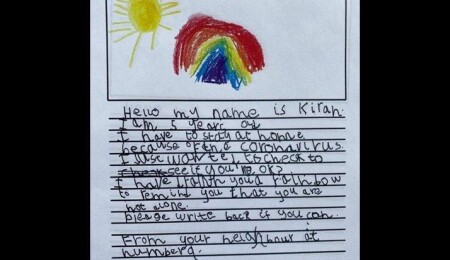 Hello my name is Kirah.
I am 5 years old
I have to stay at home
because of the coronavirus.
I wanted to check to
see if you are ok?
I have you a rainbow
to remind you that you are
not alone.
please write back if you can.
From your neighbour at
number 9.